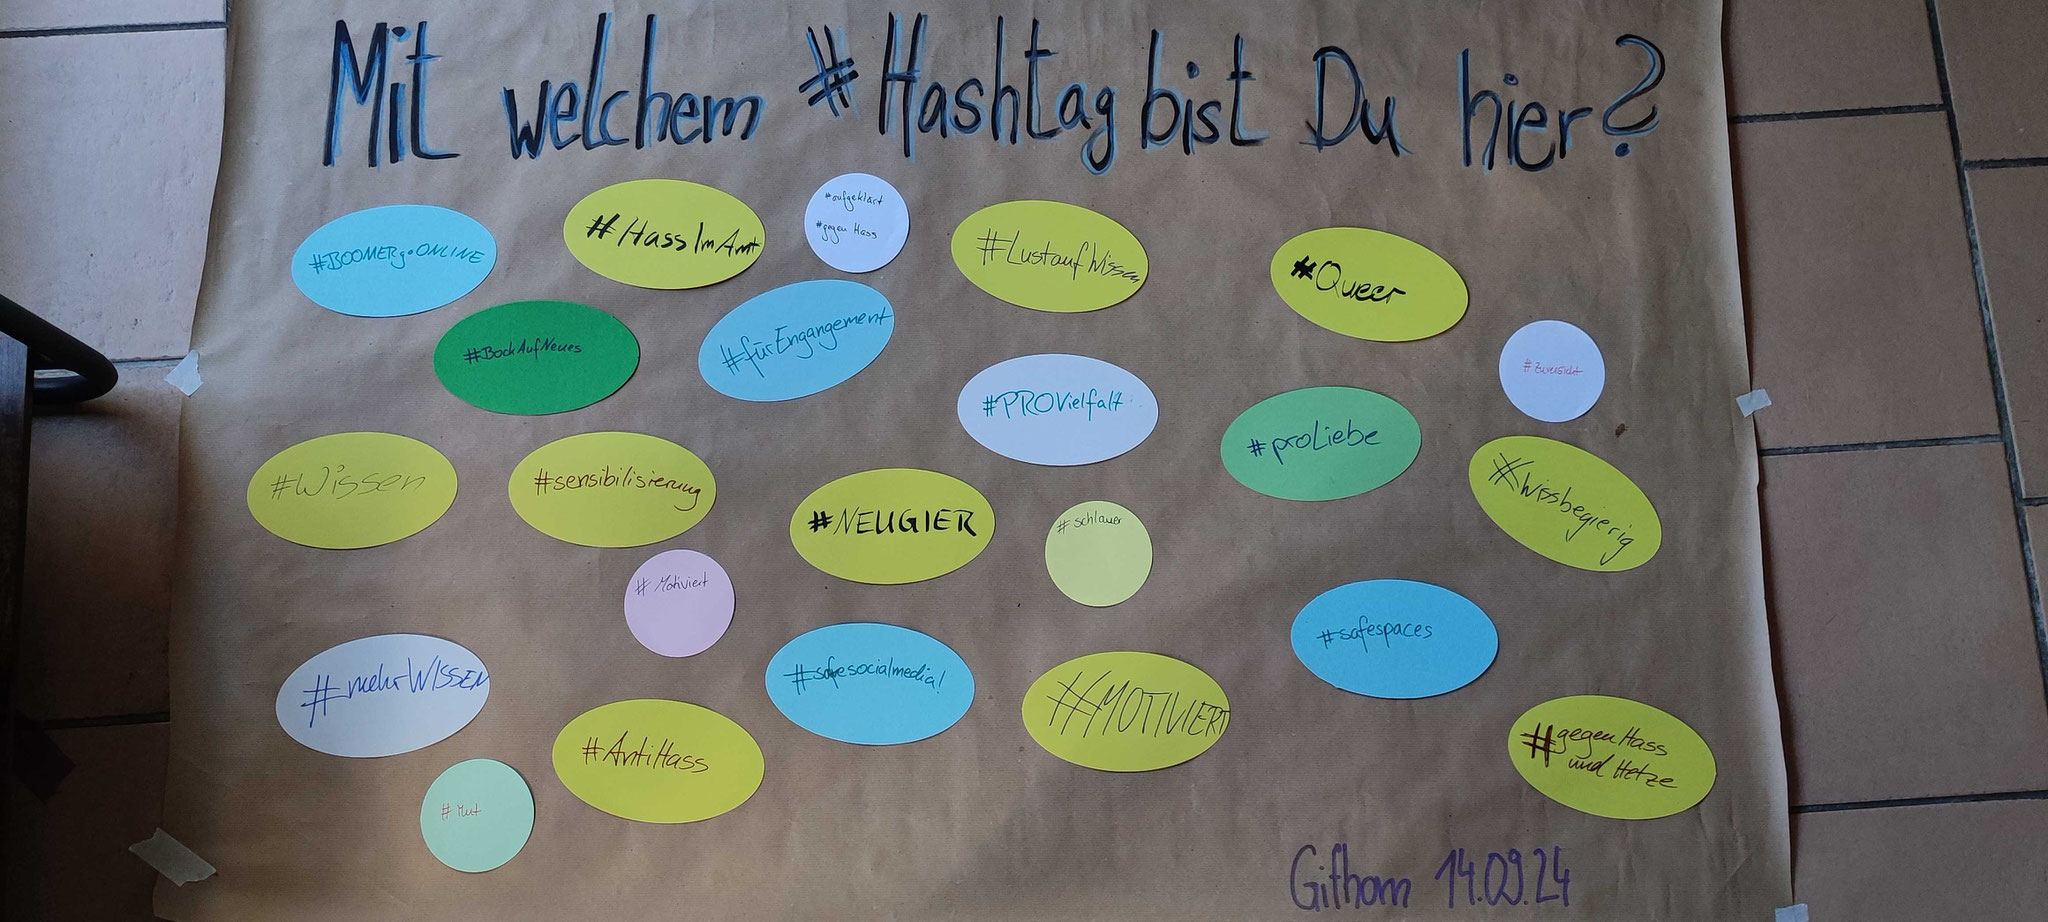 Mit welchem #Hashtag bist Du hier?
#BOOMERgoONLINE
#HassImAmt
#aufgeklärt
#gegen Hass
#LustaufWissen
#Queer
#BockAufNeues
#fürEngangement
#PROVielfalt
#proLiebe
#Zuversicht
#Wissen
#sensibilisierung
#NEUGIER
#schlauer
#wissbegierig
#Motiviert
#mehrWISSEN
#safesocialmedia!
#MOTIVIERT
#safespaces
#AntiHass
#gegenHass
und Hetze
#Mut
Gifhorn 14.09.24